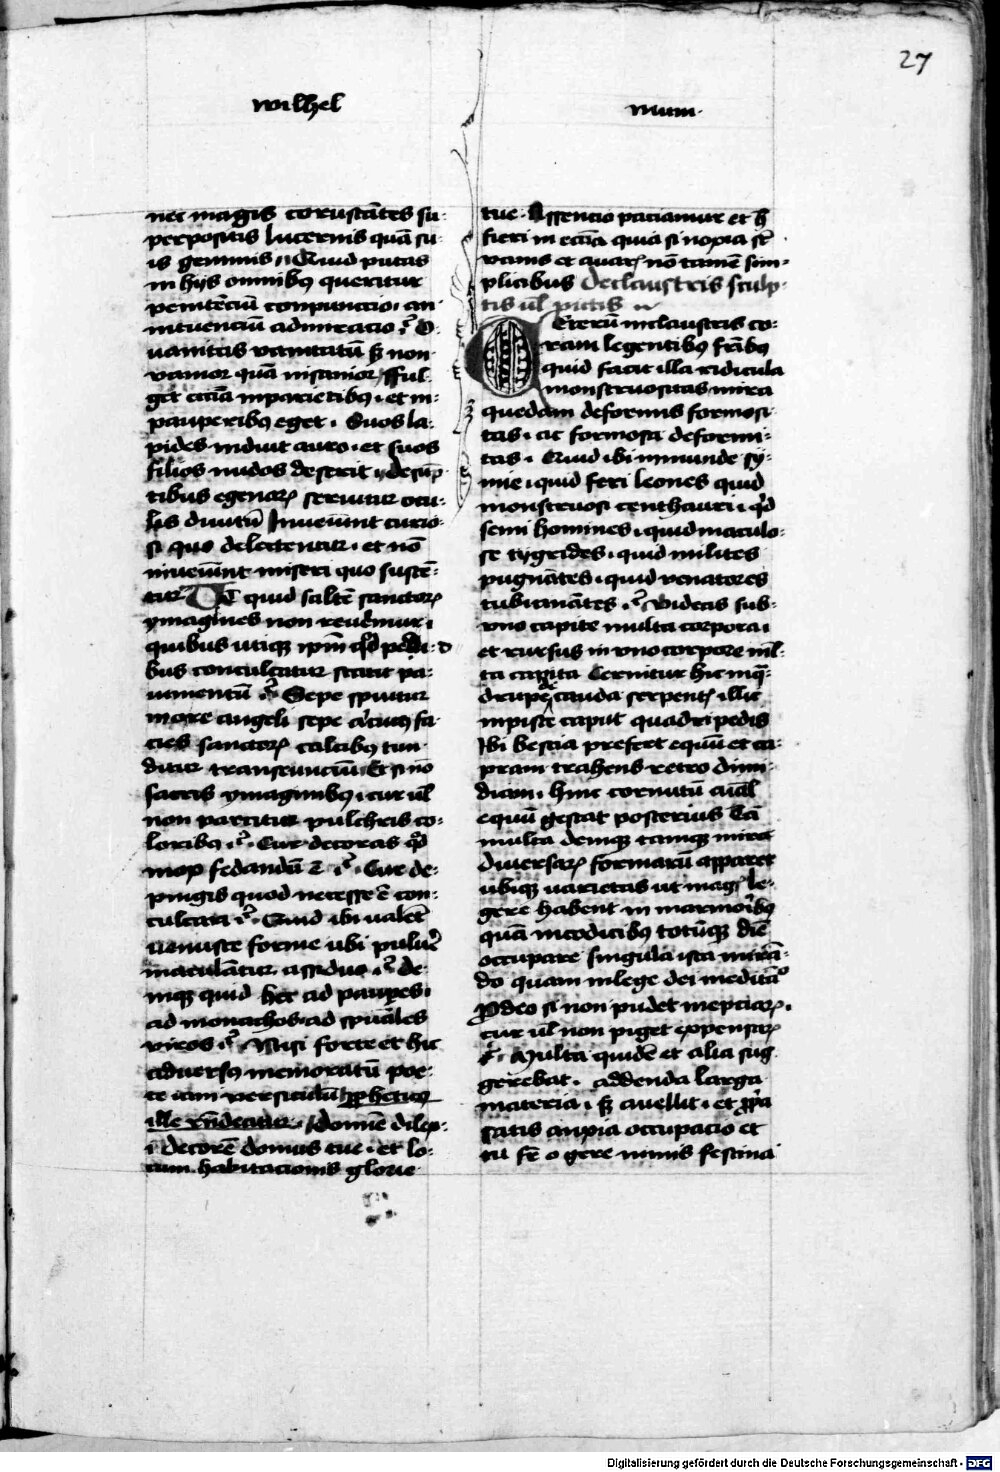 27
wilhel
mum·
nec magis coruscātes su-
perpositis lucernis quā su-
is gemmis Quid putas
in hijs omnibus queritur
penitēciū conpunctio· an
intuenciū admiracio ? O
uanitas vanitatū sꝫ non
vanior quā insanior Fful-
get ecīā in parietibꝯ· et in
pauperibꝯ eget · Suos la-
pides induit auro · et suos
filios nudos deserit · de sūp-
tibus egenoꝝ seruitur ocu-
lis diuitū Inueniūt curio-
si quo delectentur · et nō
inueniūt miseri quo sustē-
tur Ut quid saltē sanctoꝝ
ymagines non reuēmur ·
quibus utiqꝫ ip̄m qd̄ pedi-
bus conculcatur scatit pa-
uimentū ? Sepe spuitur
in ore angeli sepe alicuiꝯ fa-
cies sanctoꝝ calcibꝯ tun-
ditur transeunciū Et si nō
sacris ymaginibꝯ · cur ul̄
non parcitur pulchris co-
loribꝯ ? Cur decoras qd̄
mox fedandū ē ? Cur de-
pingis quod necesse ē con-
culcari ? Quid ibi ualēt
uenuste forme ubi puluē
maculātur assiduo ? De-
niqꝫ quid hec ad paupes ·
ad monachos · ad spūales
viros ? Nisi forte et hic
aduersꝯ memoratū poe-
te iam versiculū ꝓpheticꝯ
ille rn̄deatur · Domīe dilex-
i decorē domus tue · et lo-
cum habitacionis glorie
tue · Assencio paciamur et h̄
fieri in ecc̄ia quia si noxia st̄
vanis et auaꝝ nō tamē sim-
plicibus De claustris sculp-
tis ul̄ pictis
Ceterū in claustris co-
ram legentibꝯ fr̄ibꝯ
quid facit illa ridicula
monstruositas mira
quedam deformis formosi-
tas · ac formosa deformi-
tas · Quid ibi inmunde sy-
mie · quid feri leones quid
monstruosi centhauri · qd̄
semi homines · quid maculo-
se tygrides · quid milites
pugnātes · quid venatores
tubicinātes ? Videas sub
vno capite multa corpora ·
et rursus in vno corpore ml̄-
ta capita Cernitur hic in q̄-
drupe cauda serpent illic
in pisce caput quadripedis
Ibi bestia prefert equū et ca-
pram trahens retro dimi-
diam · hinc cornutū aīal
equū gestat posterius Tā
multa deniqꝫ tamqꝫ mira
diuersaꝝ formarū apparet
ubiqꝫ uarietas ut mag le-
gere habent in marmoībꝯ
quā in codicibꝯ totūqꝫ diē
occupare singula ista mirā-
do quam in lege dei meditādo
Pro deo si non pudet inepciaꝝ ·
cur ul̄ non piget expensaꝝ
? Multa quidē et alia sug-
gerebat · addenda larga
materia · sꝫ auellit · et ꝓpa
satis anxia occupacio et
tu fr̄ o gere nimis festina